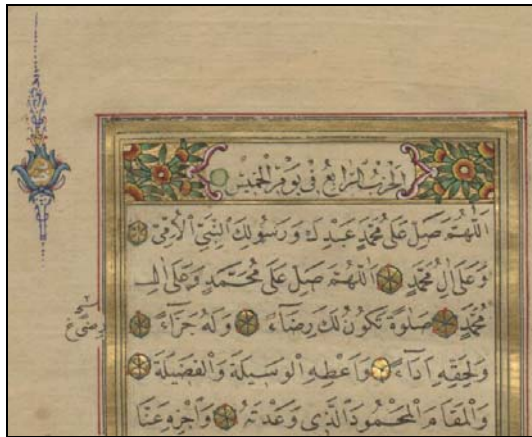 اَلْحِزْبُ الرَّابِعُ فِي يَوْمِ الْخَمِيسِ
اَللّٰهُمَّ صَلِّ عَلَى مُحَمَّدٍ عَبْدِكَ وَرَسُولِكَ النَّبِيِّ الْاُمِّيِّ
وَعَلَى اٰلِ مُحَمَّدٍ اَللّٰهُمَّ صَلِّ عَلَى مُحَمَّدٍ وَعَلَى اٰلِ
مُحَمَّدٍ صَلٰوةً تَكُونُ لَكَ رِضَاءً وَلَهُ جَزَاءً
وَلِحَقِّهِ اَدَاءً وَاَعْطِهِ الْوَسِيلَةَ وَالْفَضِيلَةَ
وَالْمَقَامَ الْمَحْمُودَ الَّذِي وَعَدْتَهُ وَاَجْزِهِ عَنَّا